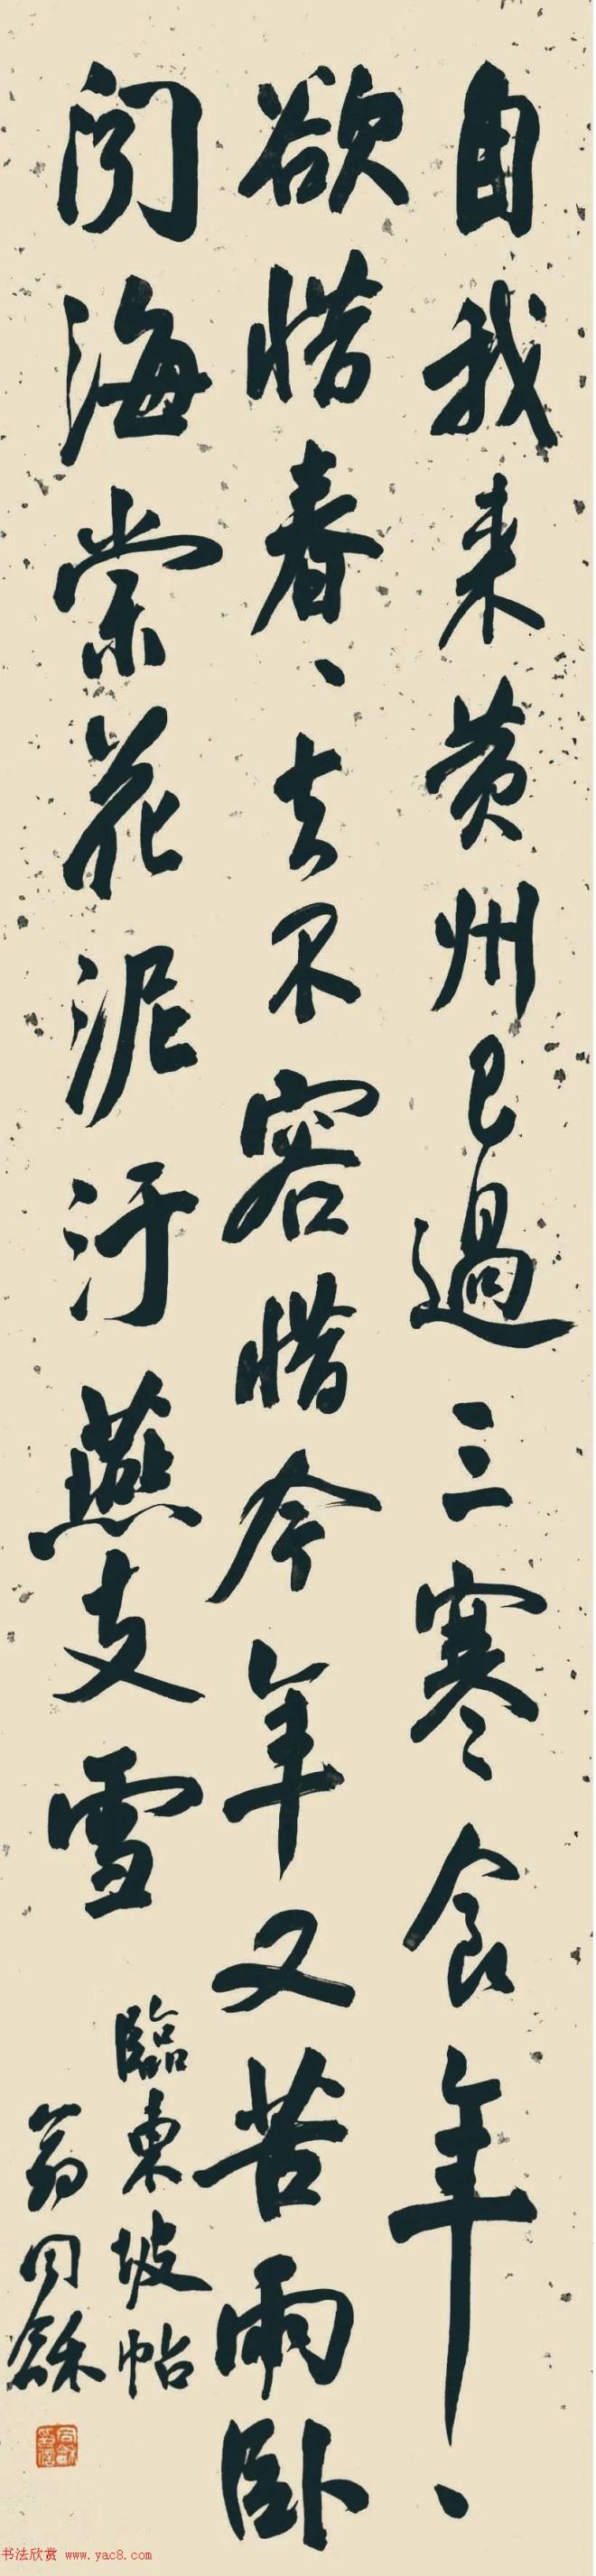 自我来黄州已過三寒食年、
欲惜春、去不容惜今年又苦雨卧
闻海棠花泥汙燕支雪
臨東坡帖
翁同龢
书法欣赏 www.yac8.com